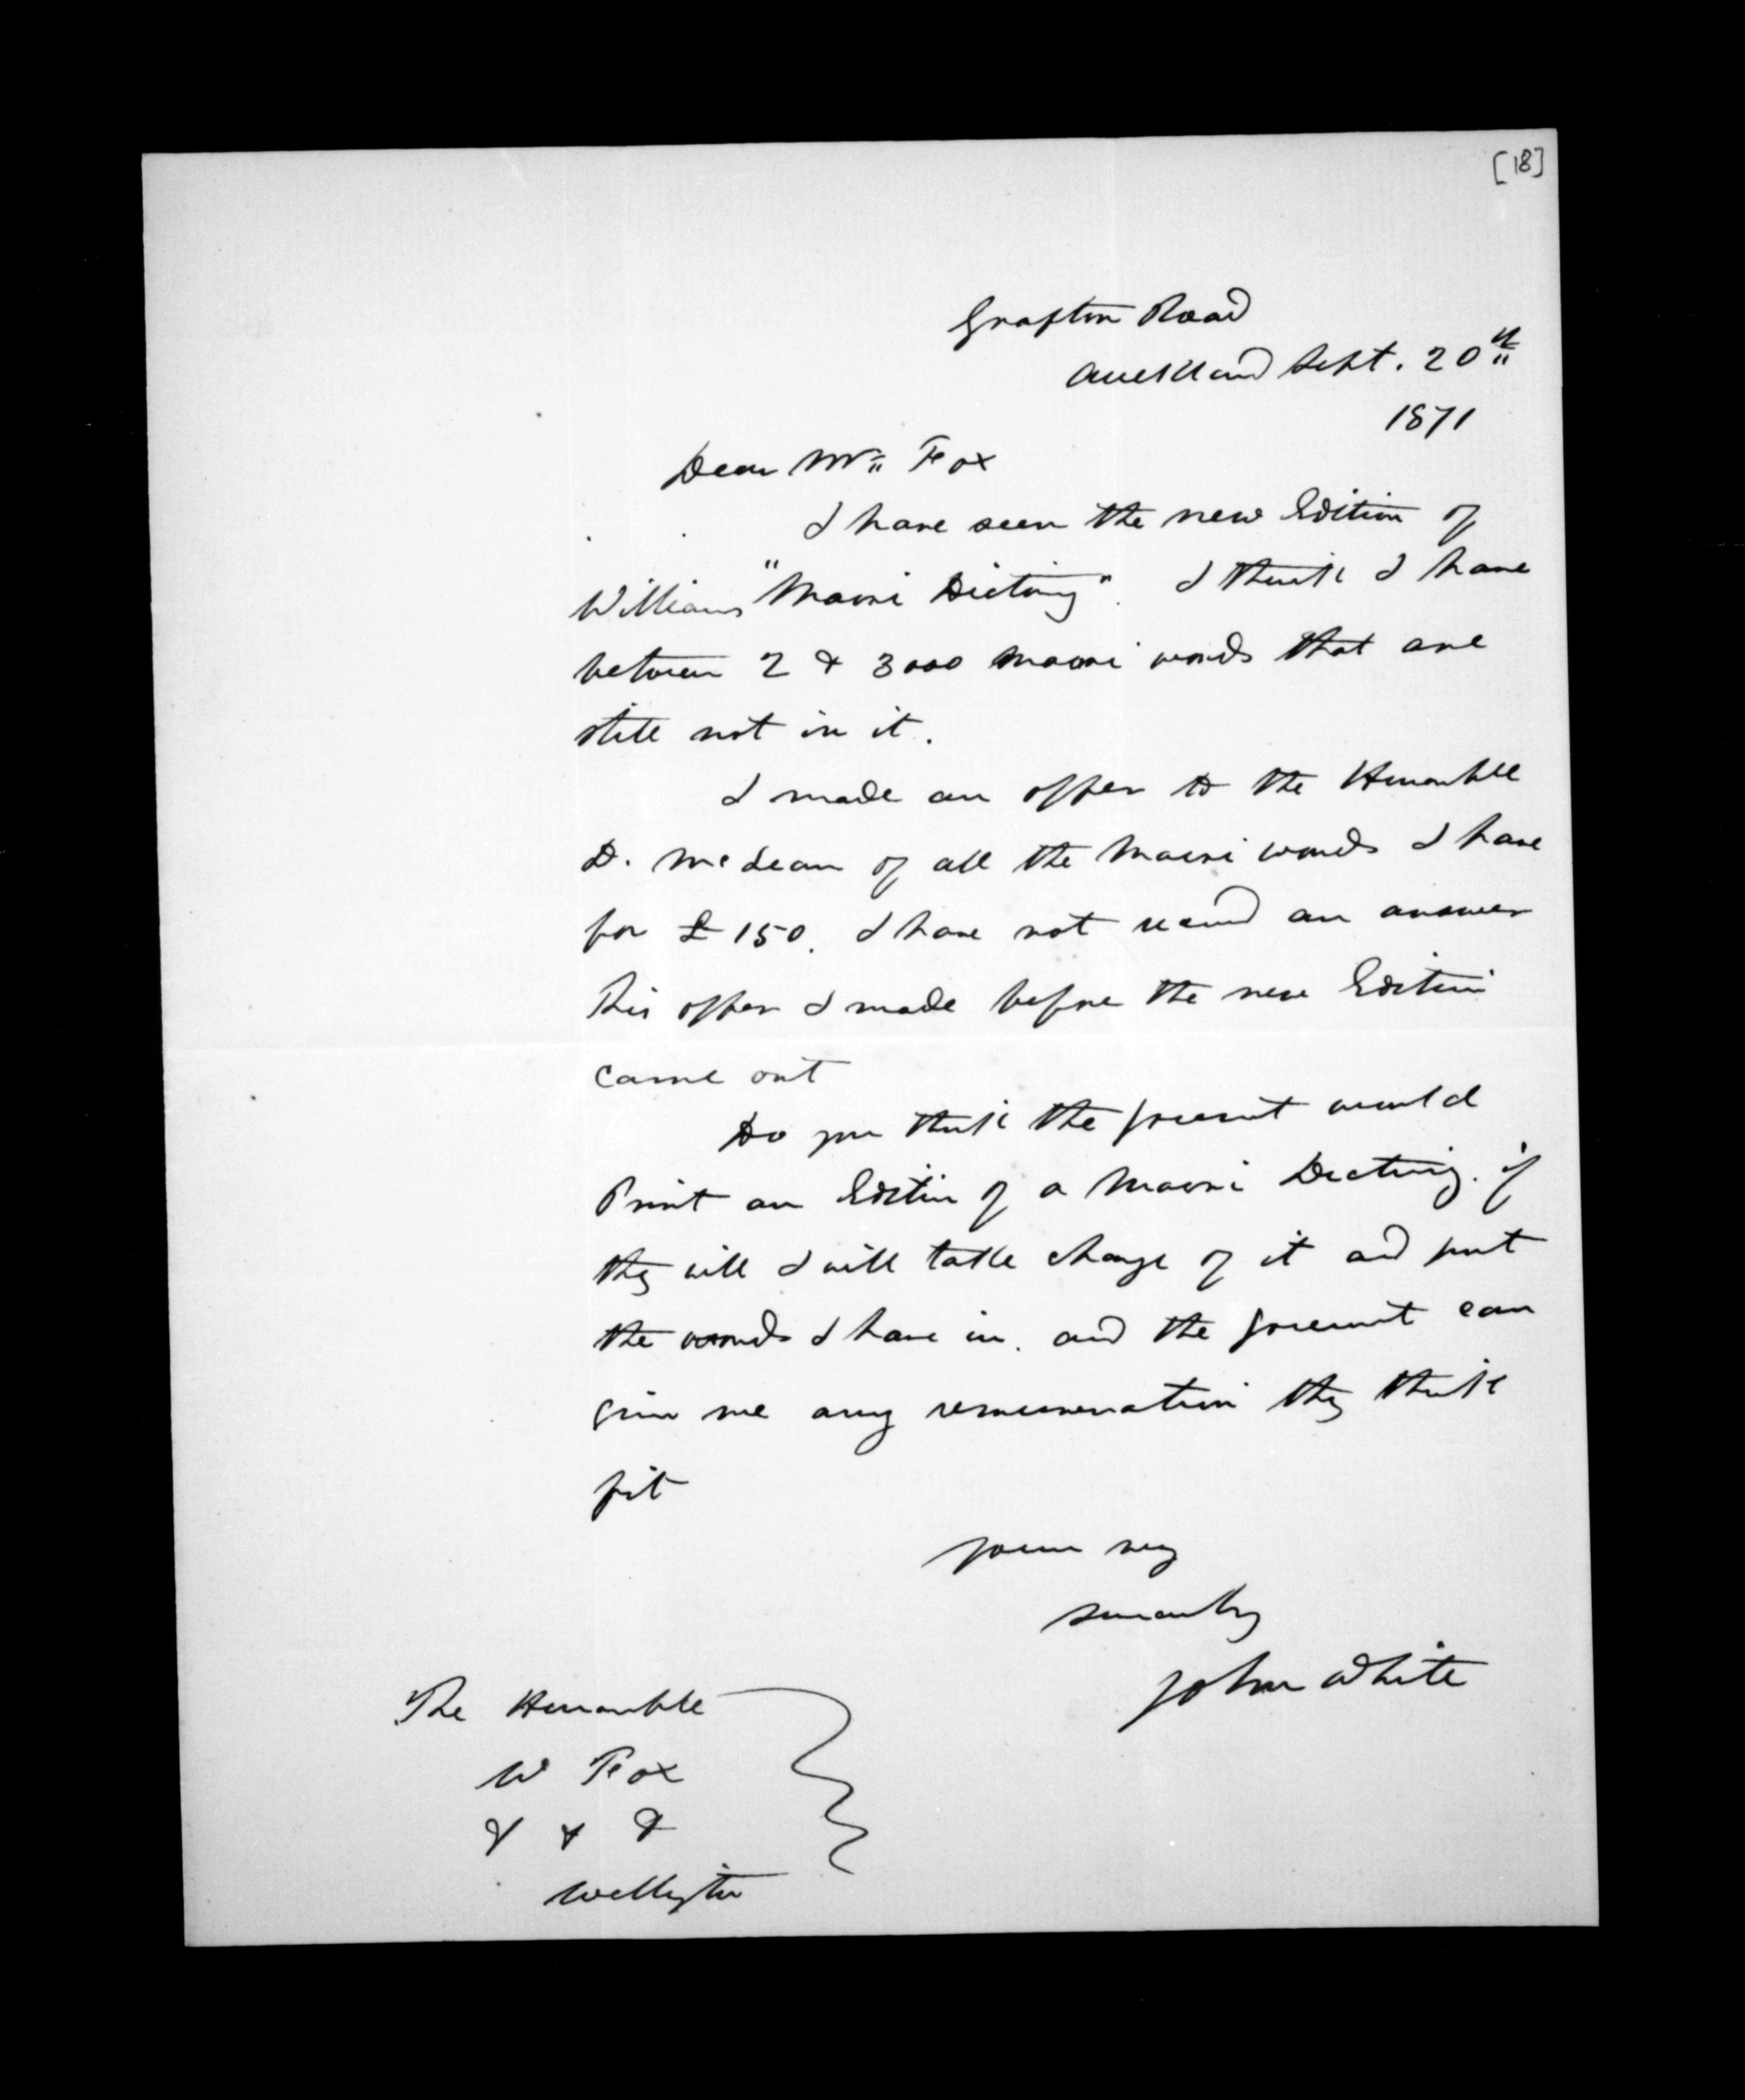 [18]
Grafton Road
Auckland Sept. 20th
1871
Dear Mr Fox
I have seen the new Edition of
Williams "Maori Dictionary". I think I have
between 2 & 3000 Maori words that are
still not in it.
I made an offer to the Honorable
D. McLean of all the Maori words I have
for £150. I have not received an answer
This offer I made before the new Edition
came out
Do you think the Goverment would
Print an Edition of a Maori Dictionary. if
they will I will take charge of it and put
the words I have in. and the Goverment can
give me any remuneration they think
fit
yours very
sincerely
John White
The Honorable
W Fox
& & &
Wellington